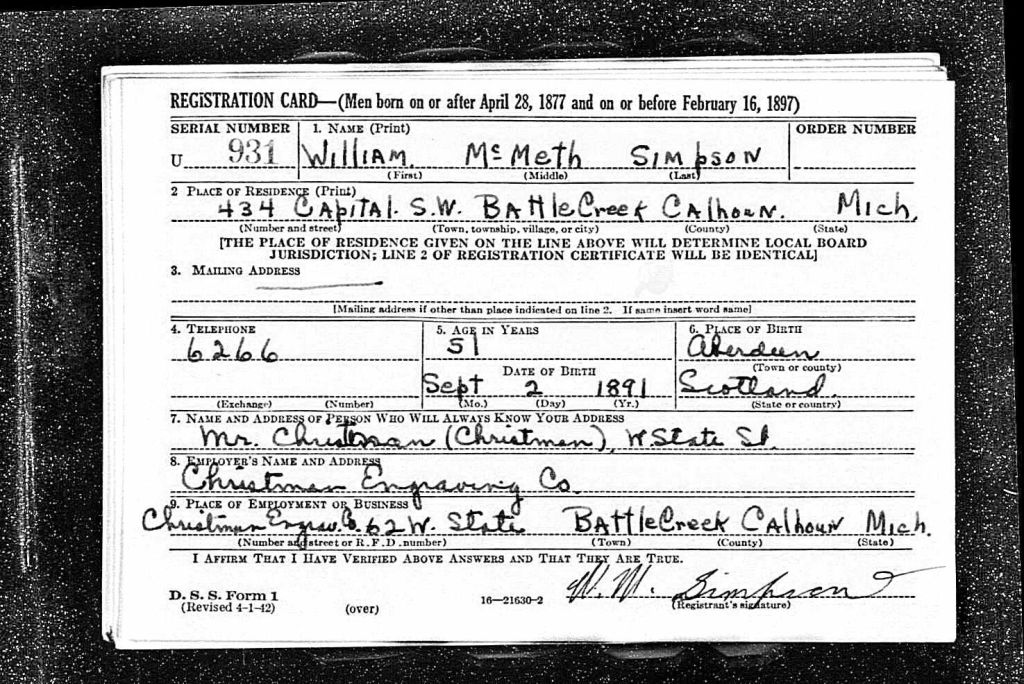 REGISTRATION CARD—(Men born on or after April 28, 1877 and on or before February 16, 1897)
SERIAL NUMBER 1. NAME (Print) ORDER NUMBER
U 931 William Mc Meth Simpson
(First) (Middle) (Last)
2 PLACE OF RESIDENCE (Print)
434 Capital S.W. BattleCreek Calhoun. Mich.
(Number and street) (Town, township, village, or city) (County) (State)
[THE PLACE OF RESIDENCE GIVEN ON THE LINE ABOVE WILL DETERMINE LOCAL BOARD
JURISDICTION; LINE 2 OF REGISTRATION CERTIFICATE WILL BE IDENTICAL]
3. MAILING ADDRESS
[Mailing address if other than place indicated on line 2. If same insert word same]
4. TELEPHONE 5. AGE IN YEARS 6. PLACE OF BIRTH
6266 51 Aberdeen
DATE OF BIRTH (Town or county)
Sept 2 1891 Scotland.
(Exchange) (Number) (Mo.) (Day) (Yr.) (State or country)
7. NAME AND ADDRESS OF PERSON WHO WILL ALWAYS KNOW YOUR ADDRESS
Mr. (Christman), W State St.
8. EMPLOYER'S NAME AND ADDRESS
Christman Engraving Co.
9. PLACE OF EMPLOYMENT OR BUSINESS
Christman Engrav. Co. 62 W. State BattleCreek Calhoun Mich.
(Number and street or R. F. D. number) (Town) (County) (State)
I AFFIRM THAT I HAVE VERIFIED ABOVE ANSWERS AND THAT THEY ARE TRUE.
W. M. Simpson
D. S. S. Form 1
(Revised 4-1-42) (over) 16—21630-2 (Registrant's signature)